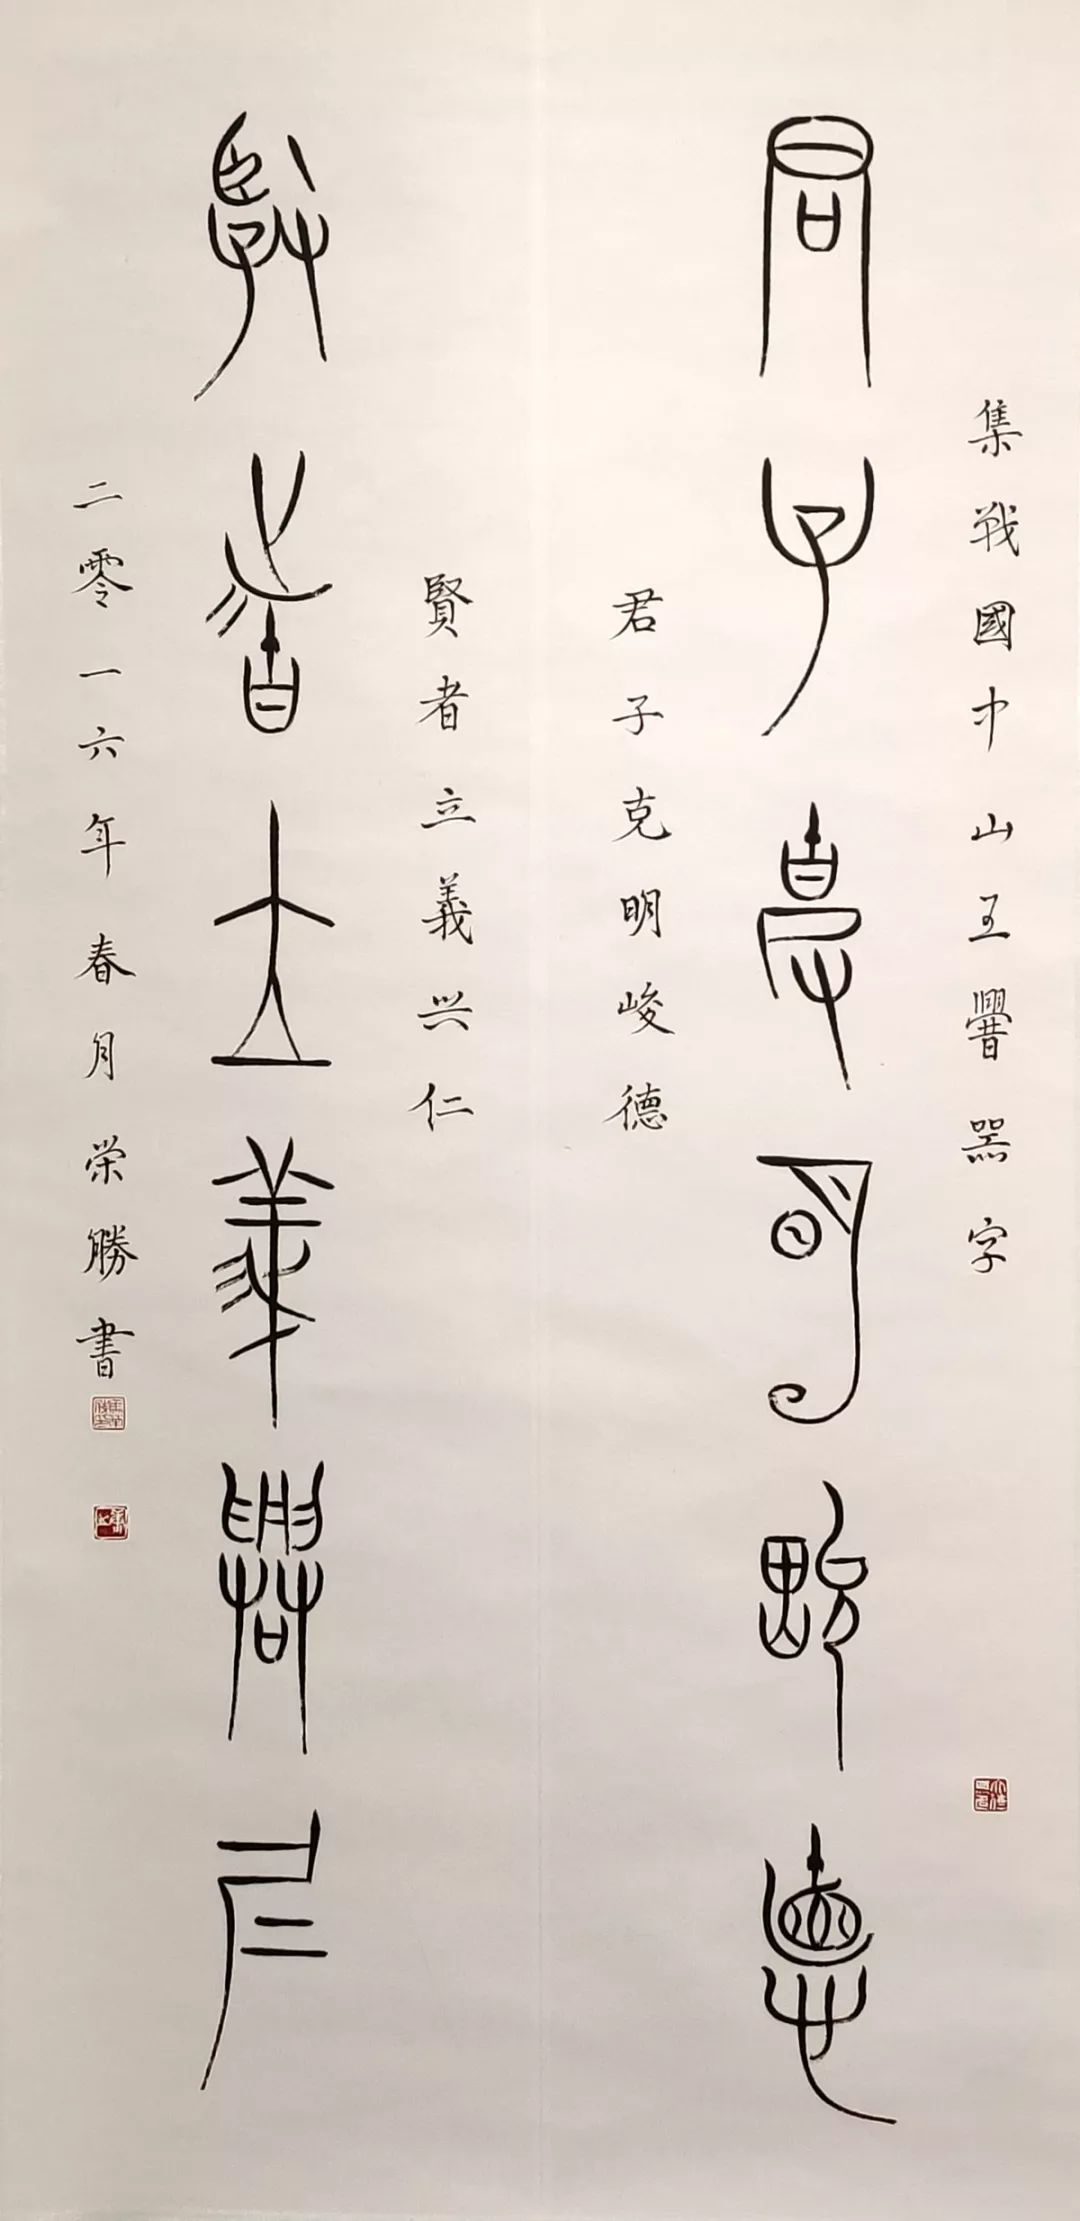 集戰國中山王𰯼器字
君子克明峻德
君子克明峻德
賢者立義兴仁
賢者立義興仁
二零一六年春月荣勝書